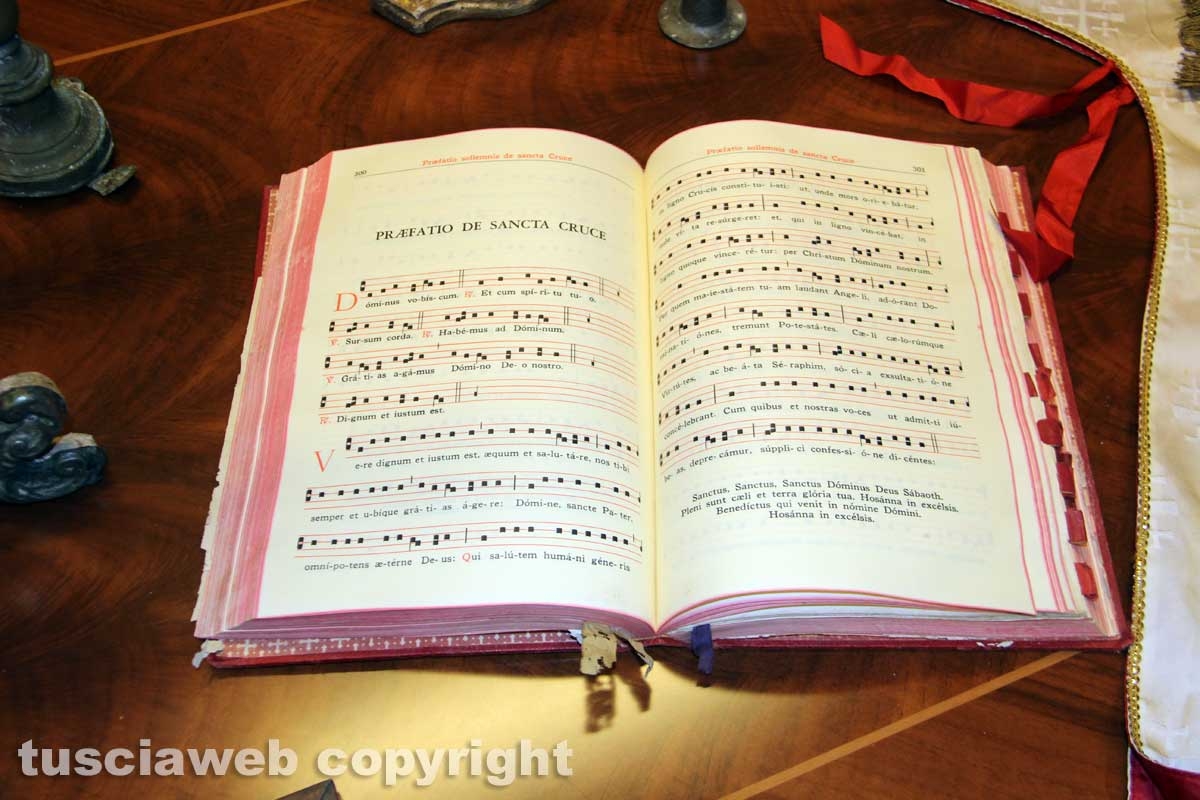 300
Præfatio sollemnis de sancta Cruce
PRÆFATIO DE SANCTA CRUCE
Dóminus vo-bís-cum. ℟. Et cum spí-rí-tu tu- o.
℣. Sur-sum corda. ℟. Ha-bé-mus ad Dómi-num.
℣. Grá-ti- as a-gá-mus Dómi-no De- o nostro.
℟. Di-gnum et iustum est.
Ve-re dignum et iustum est, æquum et sa-lu-tá-re, nos ti-bi
semper et u-bíque grá-ti- as á-ge-re: Dómi-ne, sancte Pa-ter,
omní-po-tens æ-térne De-us: Qui sa-lú-tem humá-ni géne-ris
Præfatio sollemnis de sancta Cruce
301
in ligno Cru-cis constí-tu- i-sti: ut, unde mors o-ri- e-bá-tur,
inde vi-ta re-súrge-ret: et, qui in ligno vin-cé-bat, in
ligno quoque vince-ré-tur: per Chri-stum Dóminum nostrum.
Per quem ma-ie-stá-tem tu- am laudant Ange-li, ad-ó-rant Do-
mi-na-ti- ó-nes, tremunt Po-te-stá-tes. Cæ-li cæ-lo-rúmque
Vir-tú-tes, ac be-á-ta Sé-raphim, só-ci- a exsulta-ti- ó-ne
concé-lebrant. Cum quibus et nostras vo-ces ut admit-ti iú-
be- as, depre-cámur, súppli-ci confes-si- ó-ne di-céntes:
Sanctus, Sanctus, Sanctus Dóminus Deus Sábaoth.
Pleni sunt cæli et terra glória tua. Hosánna in excélsis.
Benedíctus qui venit in nómine Dómini.
Hosánna in excélsis.
tusciaweb copyright